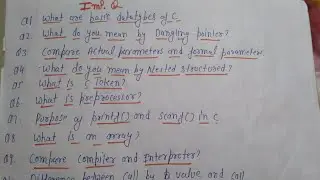 Imp. Q
Q1 What are basis datatypes of C
Q2. What do you mean by Dangling pointer?
Q3 Compare Actual parameters and formal parameters
Q4 What do you mean by Nested structured?
Q5 What is C Token?
Q6 What is preprocessor?
Q7 Purpose of printf() and scanf() in C
Q8 What is an array?
Q9. Compare compiler and Interpreter?
Difference between call by value and call